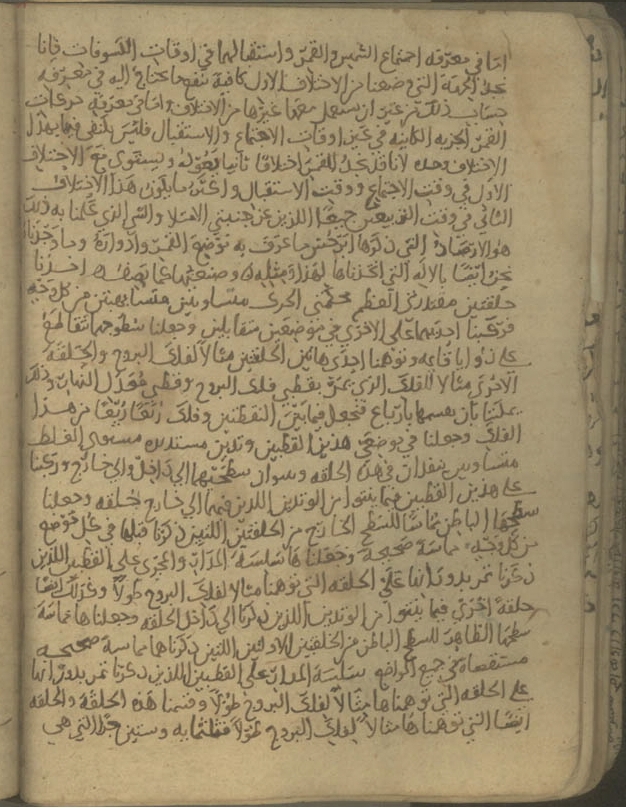 اما في معرفة اجتماع الشمس والقمر واستقبالهما في اوقات الكسوفات فانا
نجد الجهة التي وضعنا من الاختلاف الاول كافية نتفع بما يحتاج اليه في معرفة
حساب ذلك من غير ان يستعمل معها غيرها من الاختلاف واما في معرفة حركات
القمر الجزيه الكاينه في غير اوقات الاجتماع والاستقبال فليس يكتفى فيها بهذا
الاختلاف وحده لانا قد نجد للقمر اختلافا ثانيا بقوله ويستوى مع الاختلاف
الاول في وقت الاجتماع ووقت الاستقبال واعظم ما يكون هذا الاختلاف
الثاني في وقت القمر جميعا اللذين عن جنبتي الامتلا والشي الذي علمنا به ذلك
هو الارصاد التي ذكرها ابرخس ما عرف به موضع القمر وادواره وما رصدنا
نحن ايضا بالاله التي اتخذناها لهذا ومثله وصنعتها كما نصف اخذنا
حلقتين مقتدرتي العظم محكمتي الجرى متساويتين متشابهتين من كل وجه
فركبنا احديهما على الاخرى في موضعين متقابلين وجعلنا سطوحهما تتقاطع
على زوايا قائمه وتوهمنا احدى هاتين الحلقتين مثالا لفلك البروج والحلقة
الاخرى مثالا الفلك الذي يمر بقطبي فلك البروج وقطبي معدل النهار وذلك
يمكننا بان نقسمها بارباع فنجعل فيما بين النقطتين وفلك ربعا ربعا من هذا
الفلك وجعلنا في موضعي هذين القطبين وتدين مستديرين مستوى الغلظ
متساويين ينفذان في هذه الحلقه ويسوان سطحيها الى داخل والى خارج وركبنا
على هذين القطبين فيما ينتوا من الوتدين اللذين فيهما الى خارج حلقه وجعلنا
سطحها الباطن مماسا للسطح الخارج من الحلقتين اللتين ذكرنا قبلها في كل موضع
من كل وجه مماسة صحيحة وجعلناها سلسة المدار والمجرى على القطبين اللذين
ذكرنا تمر بدورانها على الحلقه التي توهمنا مثالا لفلك البروج طولا وكذلك ايضا
حلقة اخرى فيما ينتوا من الوتدين اللذين ذكرنا الى داخل الحلقه وجعلناها مماسة
سطحها الظاهر للسطح الباطن من الحلقتين الاولتين اللتين ذكرناها مماسة صحيحه
مستقصاة في جميع المواضع سلسة المدار على القطبين اللذين ذكرنا تمر بدورانها
على الحلقه التي توهمناها مثالا لفلك البروج طولا وقسمنا هذه الحلقه والحلقه
ايضا التي توهمناها مثالا لفلك البروج طولا فقلما به وستين جزا التي هي